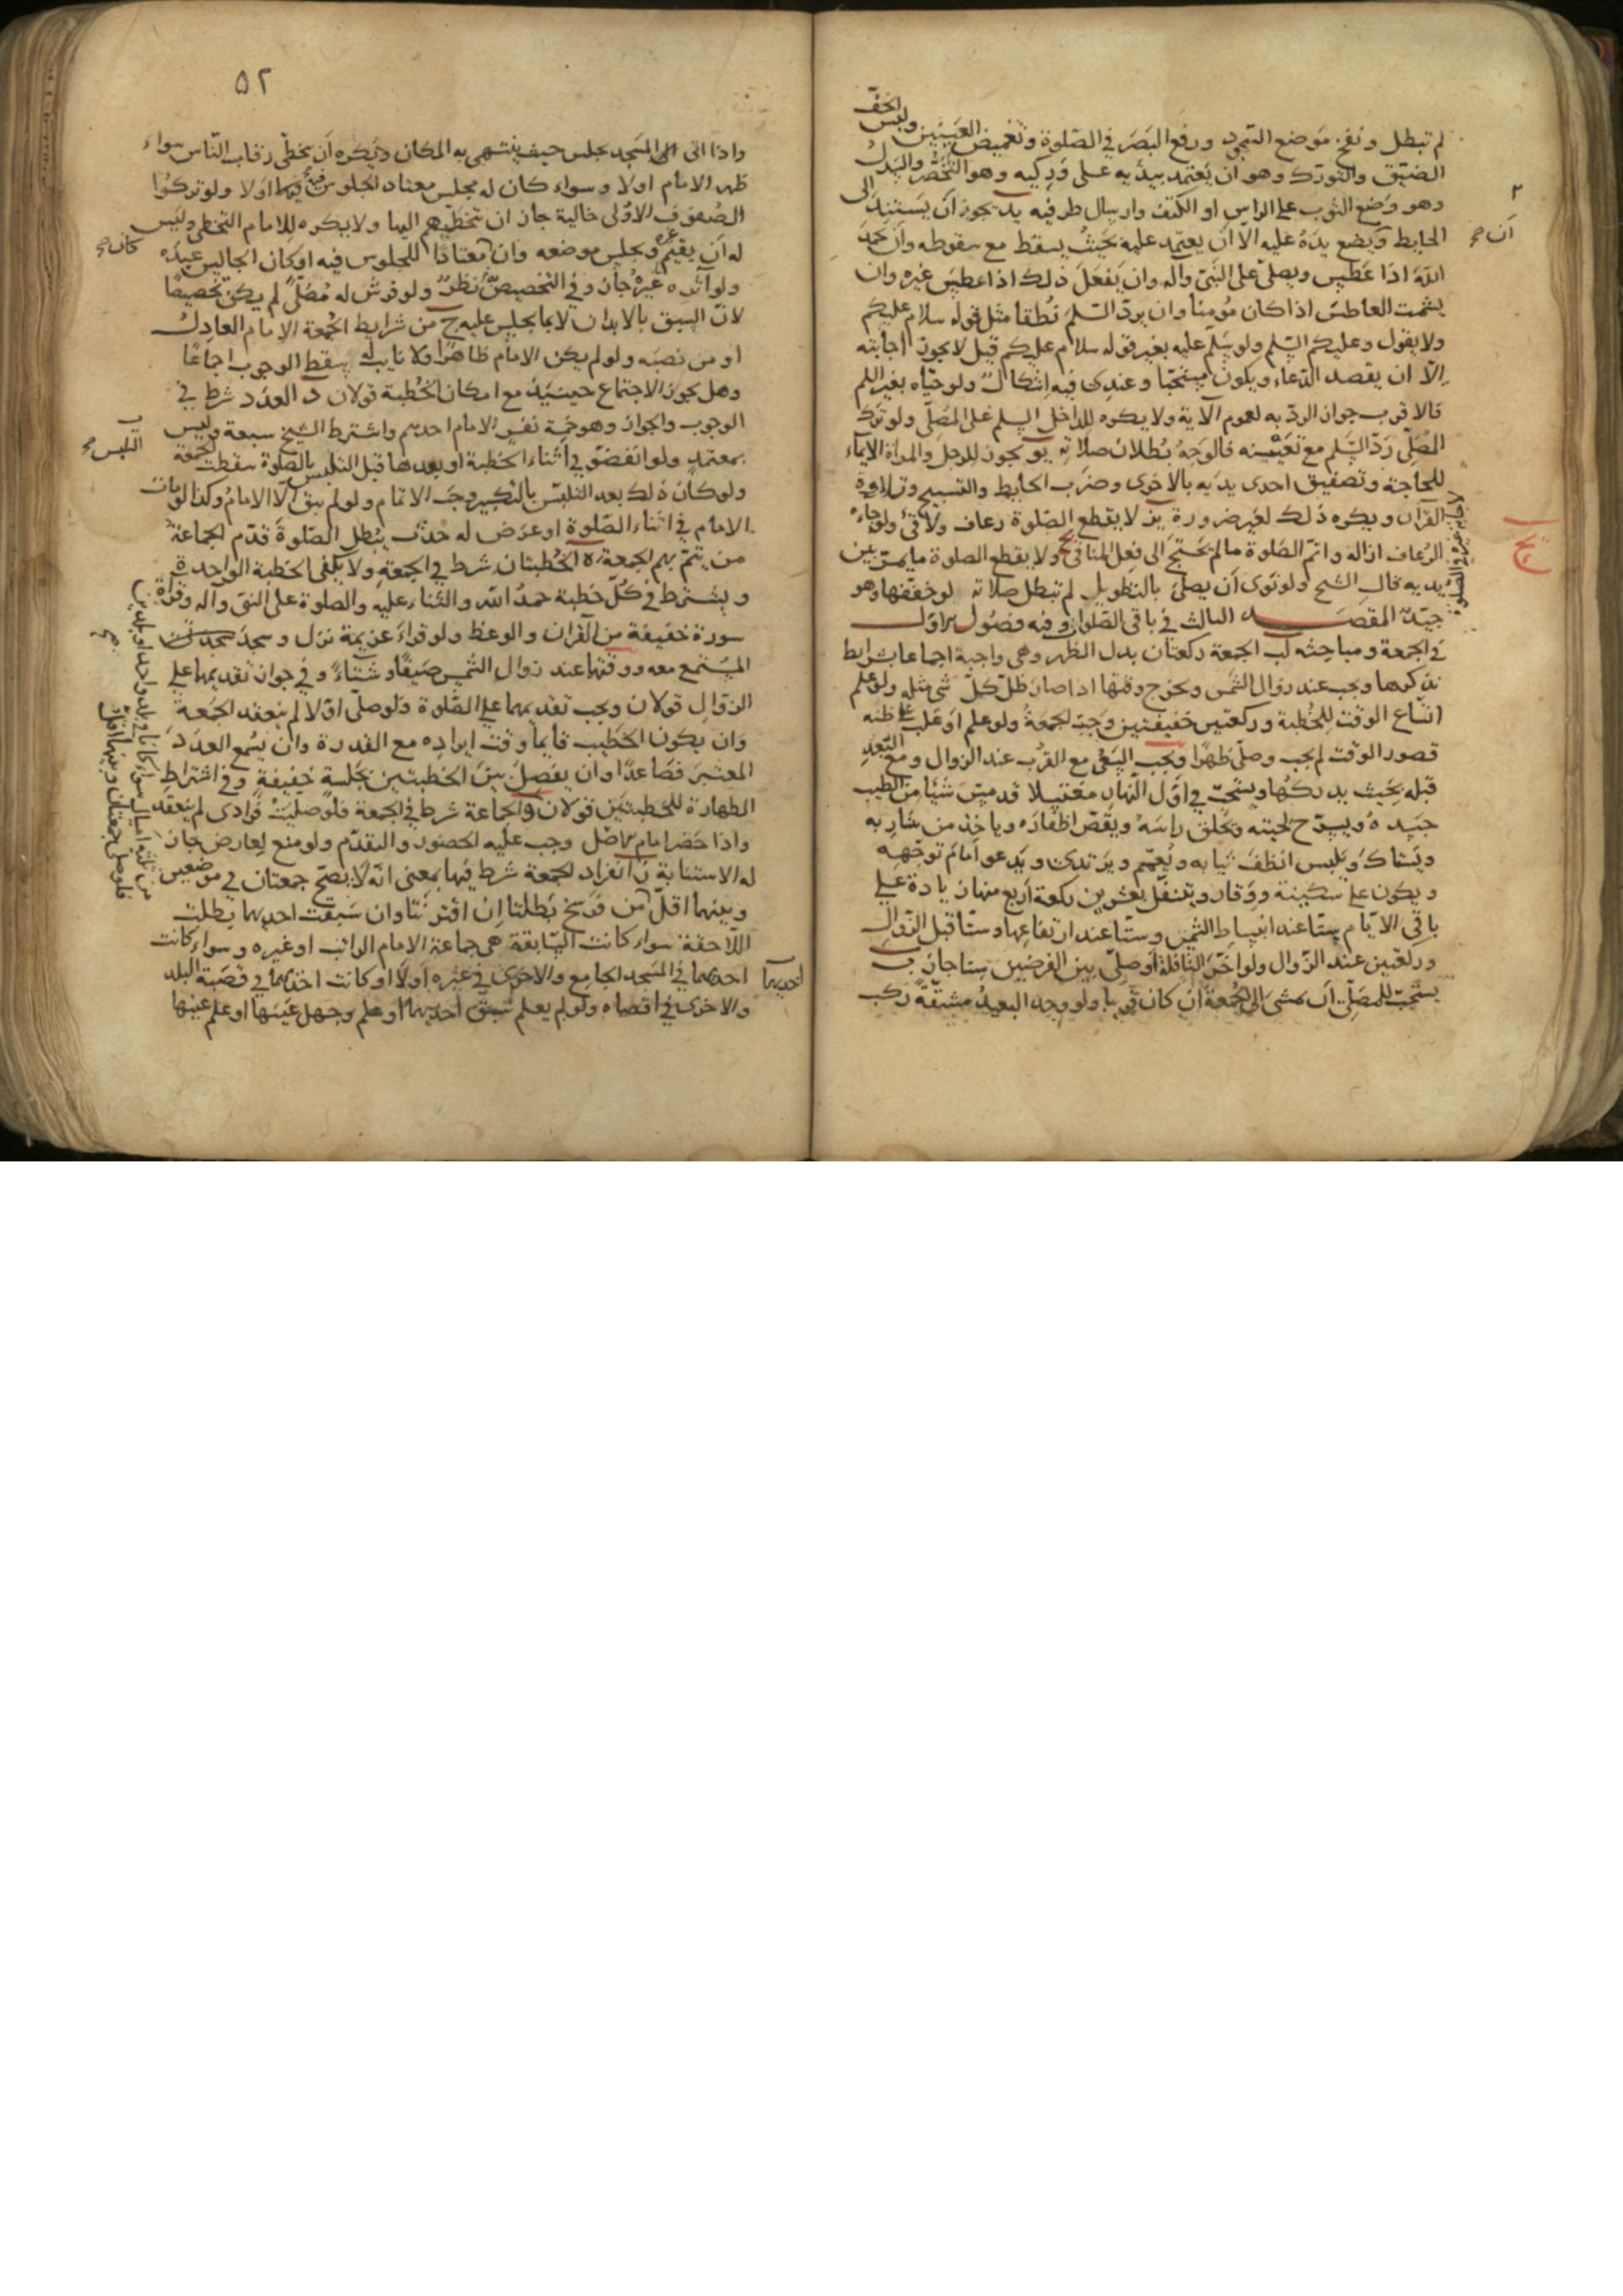 لم تبطل ونفخ موضع السجود ورفع البصر في الصلوة وتغميض العينين ولبس الخف
الضيق والتورك وهو ان يعتمد بيديه على وركيه وهو التخصر والسدل
وهو وضع الثوب على الراس او الكتف وارسال طرفيه يد يجوز ان يستند الى
الحايط ويضع يده عليه الا ان يعتمد عليه بحيث يسقط مع سقوطه وان يحمد
الله اذا عطس ويصلى على النبي وآله وان يفعل ذلك اذا عطس غيره وان
يشمت العاطس اذا كان مؤمنا وان يرد السلم نطقا مثل قوله سلام عليكم
ولا يقول وعليكم السلم ولو سلم عليه بغير قوله سلام عليكم قيل لا يجوز اجابته
الا ان يقصد الدعاء ويكون مستحقا وعندى فيه اشكال ولو حياه بغير السلم
فالاقرب جواز الرد به لعموم الآية ولا يكره للداخل السلم على المصلى ولو ترك
المصلى رد السلم مع تعينه فالوجه بطلان صلاته يو يجوز للرجل والمراة الايماء
للحاجة وتصفيق احدى يديه بالاخرى وضرب الحايط والتسبيح وتلاوة
القرآن ويكره ذلك لغير ضرورة يز لا يقطع الصلوة رعاف ولا قئ ولو جاءه
الرعاف ازاله واتم الصلوة ما لم يحتج الى فعل المنافى يح ولا يقطع الصلوة ما يمر بين
يديه قال الشيخ ولو نوى ان يصلى بالتطويل لم تبطل صلاته لو خففها وهو
جيد المقصد الثالث في باقى الصلوات وفيه فصول الاول
في الجمعة ومباحثه يب الجمعة ركعتان بدل الظهر وهى واجبة اجماعا بشرايط
نذكرها ويجب عند زوال الشمس ويخرج وقتها اذا صار ظل كل شى مثله ولو علم
اتساع الوقت للخطبة وركعتين خفيفتين وجبت الجمعة ولو علم او غلب على ظنه
قصور الوقت لم يجب وصلى ظهرا ويجب السعى مع القرب عند الزوال ومع البعد
قبله بحيث يدركها ويستحب في اول النهار مغتسلا قد مس شيئا من الطيب
جسده ويسرح لحيته ويحلق راسه ويقص اظفاره وياخذ من شاربه
ويستاك ويلبس انظف ثيابه ويعتم ويرتدى ويدعو امام توجهه
ويكون على سكينة ووقار ويتنفل بعشرين ركعة اربع منها زيادة على
باقى الايام ستا عند انبساط الشمس وستا عند ارتفاعها وستا قبل الزوال
وركعتين عند الزوال ولو اخر النافلة او صلى بين الفرضين ستا جاز ب
يستحب للمصلى ان يمشى الى الجمعة ان كان قريبا ولو وجد البعيد مشقة ركب
ان صح
٥٢
واذا اتى الى المسجد يجلس حيث ينتهى به المكان ويكره ان يتخطى رقاب الناس سواء
ظهر الامام اولا وسواء كان له مجلس معتاد الجلوس فيه اولا ولو تركوا
الصفوف الاولى خالية جاز ان يتخطيهم اليها ولا يكره للامام التخطى وليس
له ان يقيم غيره ويجلس موضعه وان معتادا للجلوس فيه او كان الجالس عبده
كان صح
ولو آثره غيره جاز وفي التخصيص نظر ولو فرش له مصلى لم يكن تخصيصا
لان السبق بالابدان لا بما يجلس عليه ج من شرايط الجمعة الامام العادل
او من نصبه ولو لم يكن الامام ظاهرا ولا نايب له سقط الوجوب اجماعا
وهل يجوز الاجتماع حينئذ مع امكان الخطبة قولان د العدد شرط في
الوجوب والجواز وهو خمسة نفر الامام احدهم واشترط الشيخ سبعة وليس
بمعتمد ولو انفض في اثناء الخطبة او بعدها قبل التلبس بالصلوة سقطت الجمعة
التلبس صح
ولو كان ذلك بعد التلبس بالتكبير وجب الاتمام ولو لم يبق الا الامام وكذا لو مات
الامام في اثناء الصلوة او عرض له حدث يبطل الصلوة قدم الجماعة
من يتم بهم الجمعة ه الخطبتان شرط في الجمعة ولا يكفى الخطبة الواحدة
ويشترط في كل خطبة حمد الله والثناء عليه والصلوة على النبى وآله وقراءة
سورة خفيفة من القرآن والوعظ ولو قراء عزيمة نزل وسجد
المستمع معه ووقتها عند زوال الشمس صيفا وشتاء وفي جواز تقديمها على
الزوال قولان ويجب تقديمها على الصلوة ولو صلى اولا لم ينعقد الجمعة
وان يكون الخطيب قايما وقت ايراده مع القدرة وان يسمع العدد
المعتبر فصاعدا وان يفصل بين الخطبتين بجلسة خفيفة وفي اشتراط
الطهارة للخطبتين قولان و الجماعة شرط في الجمعة فلو صليت فرادى لم ينعقد
واذا حضر امام الاصل وجب عليه الحضور والتقدم ولو منع لعارض جاز
له الاستنابة ز انفراد الجمعة شرط فيها بمعنى انه لا يصح جمعتان في موضعين
وبينهما اقل من فرسخ بطلتا ان اقترنتا وان سبقت احديهما بطلت
اللاحقة سواء كانت السابقة هى جماعة الامام الراتب او غيره وسواء كانت
احديهما في المسجد الجامع والاخرى في غيره اولا او كانت احديهما في قصبة البلد
والاخرى في اقصاه ولو لم يعلم سبق احديهما او علم وجهل عينها او علم عينها
احديهما